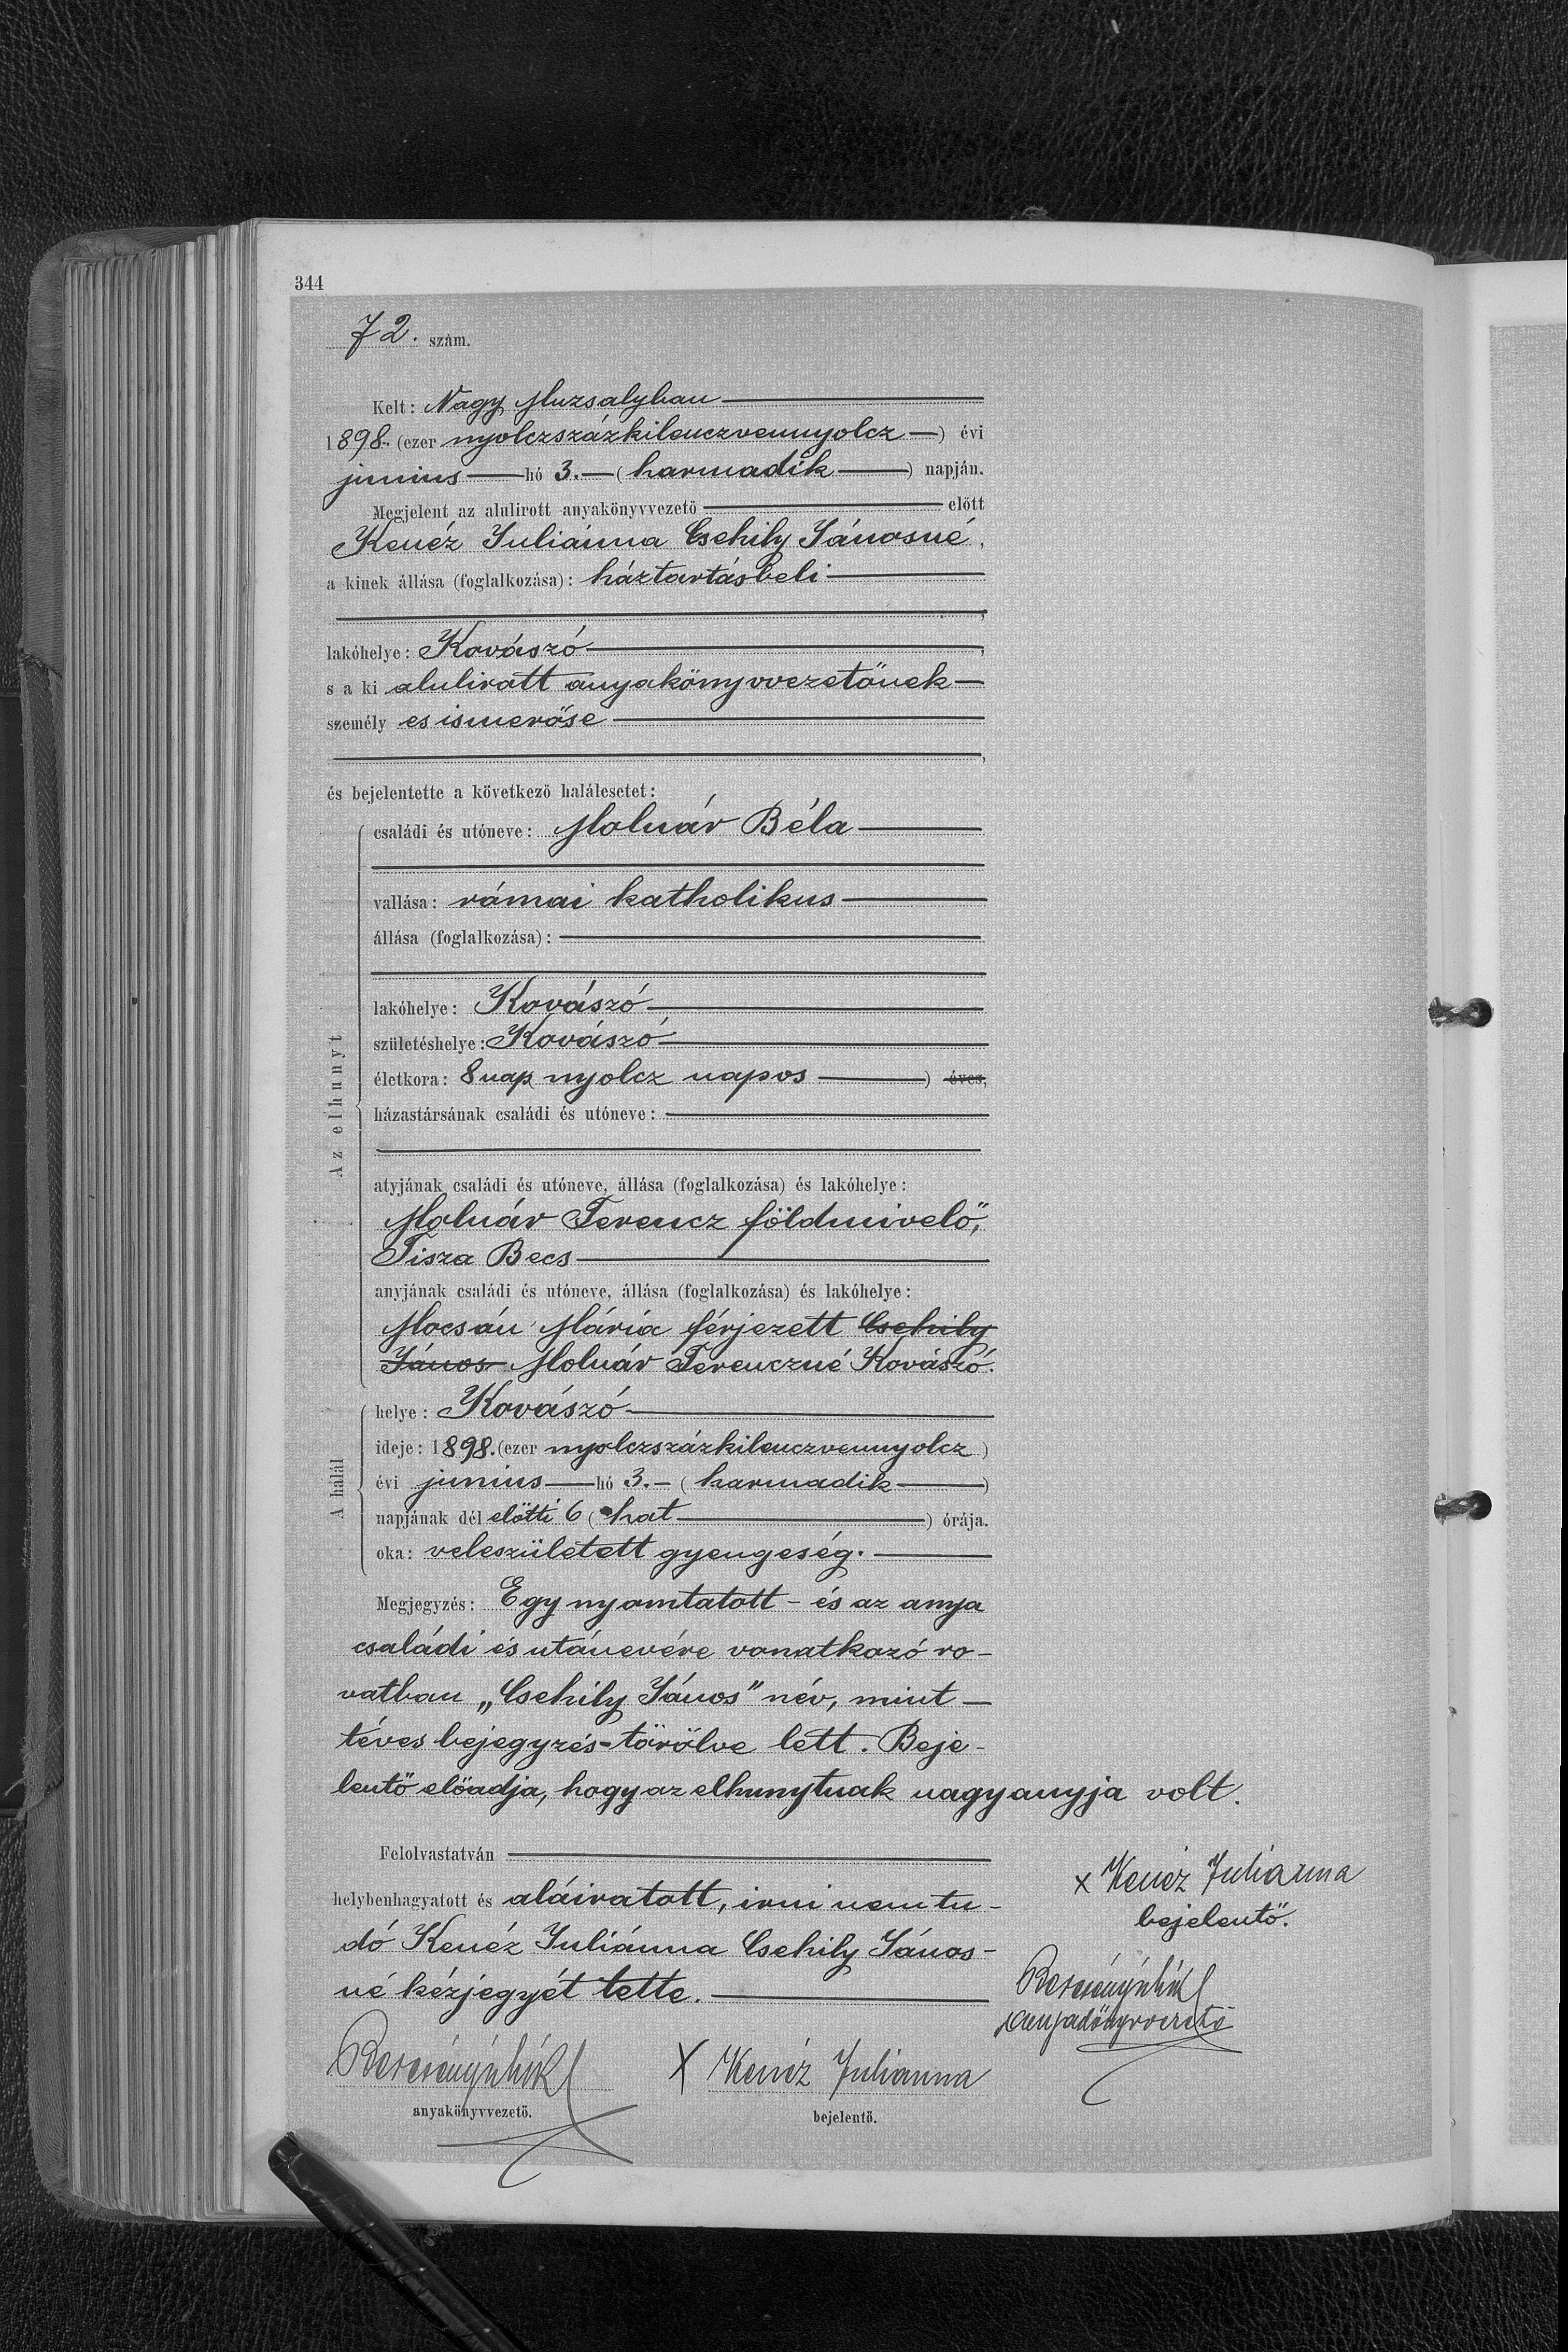 344
72. szám.
Kelt: Nagy Muzsalyban
1898. (ezer nyolczszázkilenczvennyolcz) évi
junius hó 3. (harmadik) napján.
Megjelent az alulirott anyakönyvvezető előtt
Kenéz Juliánna Csehily Jánosné,
a kinek állása (foglalkozása): háztartásbeli
lakóhelye: Kovászó,
s a ki aluliratt anyakönyvvezetőnek
személy es ismerőse
,
és bejelentette a következő halálesetet:
Az elhunyt
családi és utóneve: Molnár Béla
vallása: római katholikus
állása (foglalkozása):
lakóhelye: Kovászó
születéshelye: Kovászó
életkora: 8 nap nyolcz napos) éves,
házastársának családi és utóneve:
atyjának családi és utóneve, állása (foglalkozása) és lakóhelye:
Molnár Ferencz földmivelő,
Tisza Becs
anyjának családi és utóneve, állása (foglalkozása) és lakóhelye:
Mocsán Mária férjezett Csehily
János Molnár Ferenczné Kovászó.
A halál
helye: Kovászó
ideje: 1898. (ezer nyolczszázkilenczvennyolcz)
évi junius hó 3. (harmadik)
napjának dél előtti 6 (hat) órája.
oka: veleszületett gyengeség.
Megjegyzés: Egy nyomtatott - és az anya
családi és utónevére vonatkozó ro-
vatban „Csehily János" név, mint
téves bejegyzés - törölve lett. Beje-
lentő előadja, hogy az elhunytnak nagyanyja volt.
Felolvastatván
helybenhagyatott és aláiratott, irni nem tu-
dó Kenéz Juliánna Csehily János-
né kézjegyét tette.
x Kenéz Julianna
bejelentő.
anyakönyvvezető
anyakönyvvezető.
X Kenéz Julianna
bejelentő.